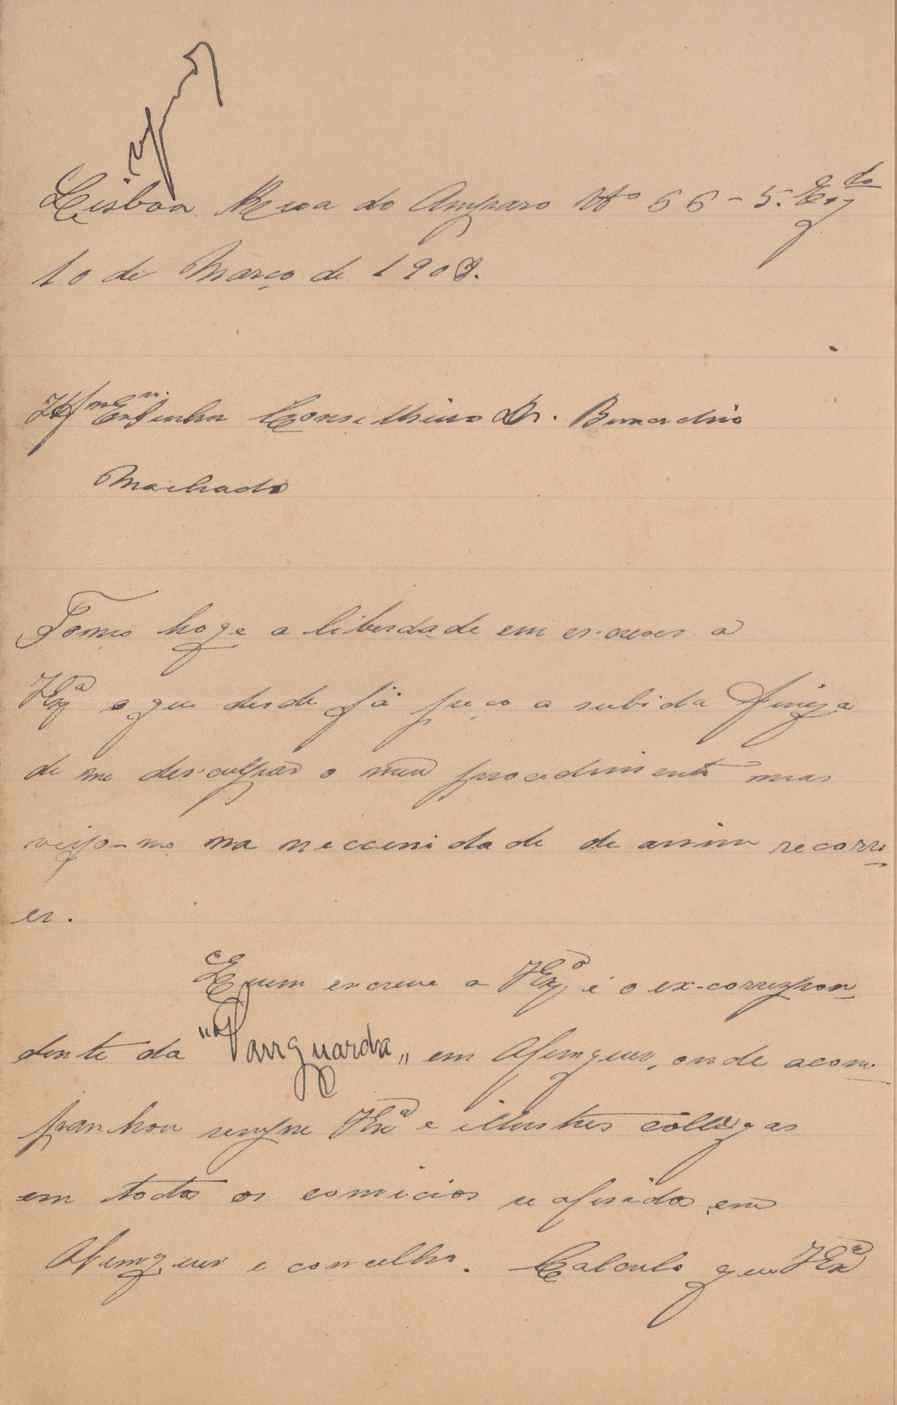 Lisboa Rua do Amparo Nº 66-5. Esq.do
10 de Março de 1908.
Illmo Exmo Senhor Conselheiro Dr. Bernardino
Machado
Tomo hoge a liberdade em escrever a
V Exª o que desde já peço a subida fineza
de me desculpar o meu procedimento mas
vejo-me na neccessidade de assim recorre
er.
Quem escreve a V Exª é o ex-correspon
dente da "Vanguarda" em Alemquer, onde acom-
panhou sempre V Exª e illustres collegas
em todos os comicios referidos em
Alemquer e concelho. Calculo que V Exª